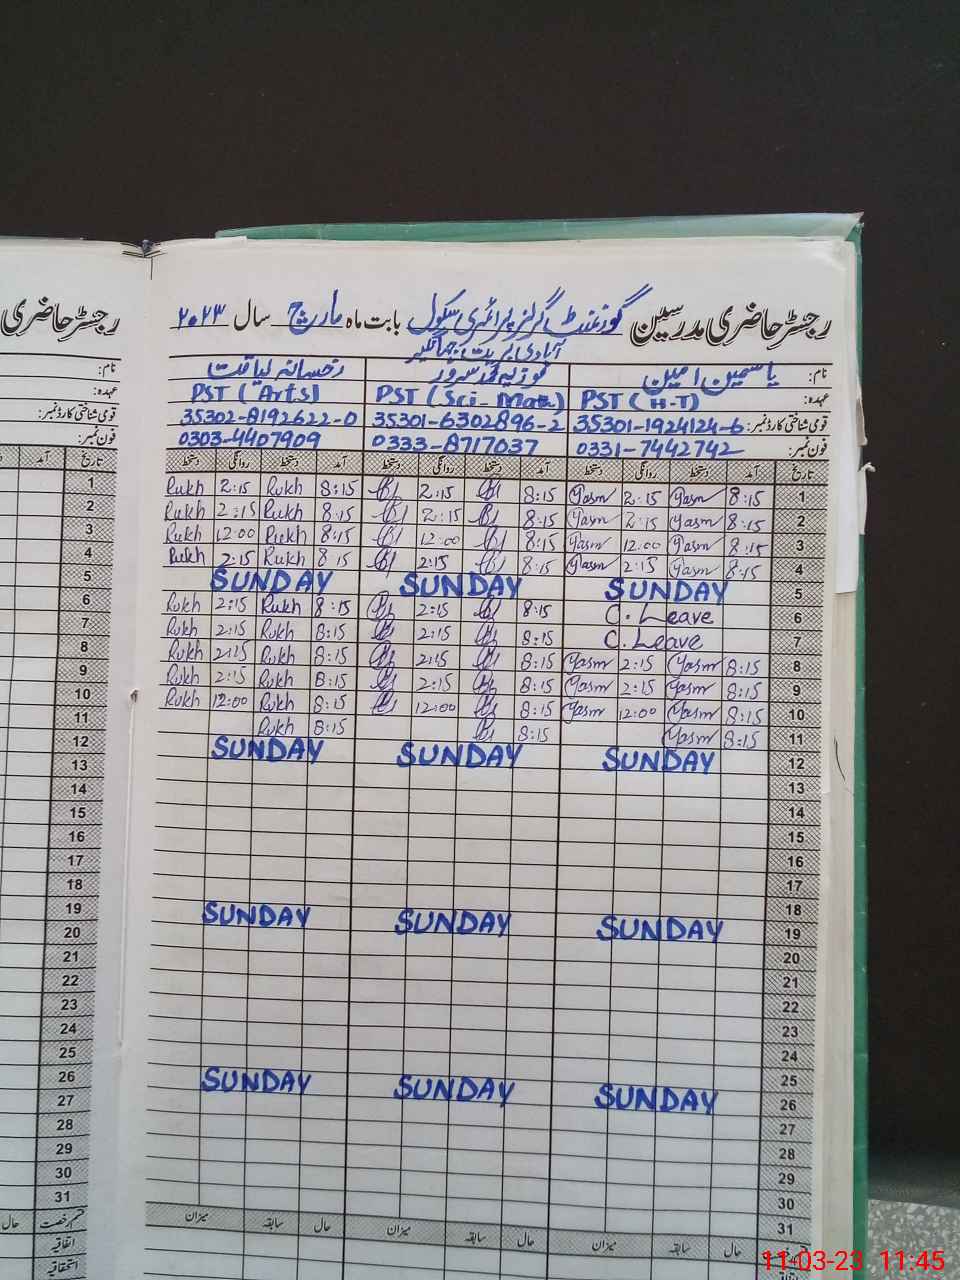 رجسٹر حاضری مدرسین گورنمنٹ گرلز پرائمری سکول بابت ماہ مارچ سال ۲۰۲۳
رجسٹر حاضری
نام: یاسمین امین فوزیہ محمد سرور رخسانہ لیاقت
عہدہ: PST (H-T) PST (Sci-Math) PST (Arts)
قومی شناختی کارڈ نمبر: 35301-1924124-6 35301-6302896-2 35302-8192622-0
فون نمبر: 0331-7442742 0333-8717037 0303-4407909
تاریخ آمد دستخط روانگی دستخط آمد دستخط روانگی دستخط آمد دستخط روانگی دستخط
1 8:15 Yasm 2:15 Yasm 8:15 2:15 8:15 Rukh 2:15 Rukh
2 8:15 Yasm 2:15 Yasm 8:15 2:15 8:15 Rukh 2:15 Rukh
3 8:15 Yasm 12:00 Yasm 8:15 12:00 8:15 Rukh 12:00 Rukh
4 8:15 Yasm 2:15 Yasm 8:15 2:15 8 15 Rukh 2:15 Rukh
5 SUNDAY SUNDAY SUNDAY
6 C. Leave 8:15 2:15 8:15 Rukh 2:15 Rukh
7 C. Leave 8:15 2:15 8:15 Rukh 2:15 Rukh
8 8:15 Yasm 2:15 Yasm 8:15 2:15 8:15 Rukh 2:15 Rukh
9 8:15 Yasm 2:15 Yasm 8:15 2:15 8:15 Rukh 2:15 Rukh
10 8:15 Yasm 12:00 Yasm 8:15 12:00 8:15 Rukh 12:00 Rukh
11 8:15 Yasm 8:15 8:15 Rukh
12 SUNDAY SUNDAY SUNDAY
13
14
15
16
17
18
19 SUNDAY SUNDAY SUNDAY
20
21
22
23
24
25
26 SUNDAY SUNDAY SUNDAY
27
28
29
30
31
حال سابقہ میزان حال سابقہ میزان حال سابقہ میزان
نام:
عہدہ:
قومی شناختی کارڈ نمبر:
فون نمبر:
تاریخ آمد
1
2
3
4
5
6
7
8
9
10
11
12
13
14
15
16
17
18
19
20
21
22
23
24
25
26
27
28
29
30
31
قسم رخصت حال
اتفاقیہ
استحقاقیہ
11-03-23 11:45